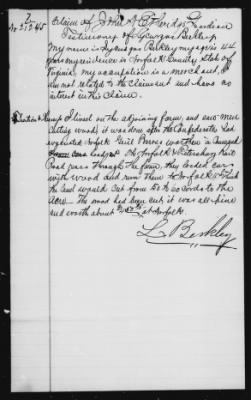 No 21545 Claim of John C. Etheridge Guardian
Testimony of Lycurgus Berkley
My name is Lycurgus Berkley my age is 44
years my residence in Norfolk County State of
Virginia, my occupation is a merchant, am
not related to the claimant and have no
interest in this Claim.
I lived on the adjoining farm, and saw men
cutting wood, it was done after the Confederates had
evacuated Norfolk Genl was then in Command
The Norfolk & Petersburg Rail
Road pass through the farm, they loaded cars
with wood and run them to Norfolk I think
the land would cut from 50 to 60 cords to the
Acre. The wood had been cut, it was all pine
and worth about at Norfolk.
L Berkley